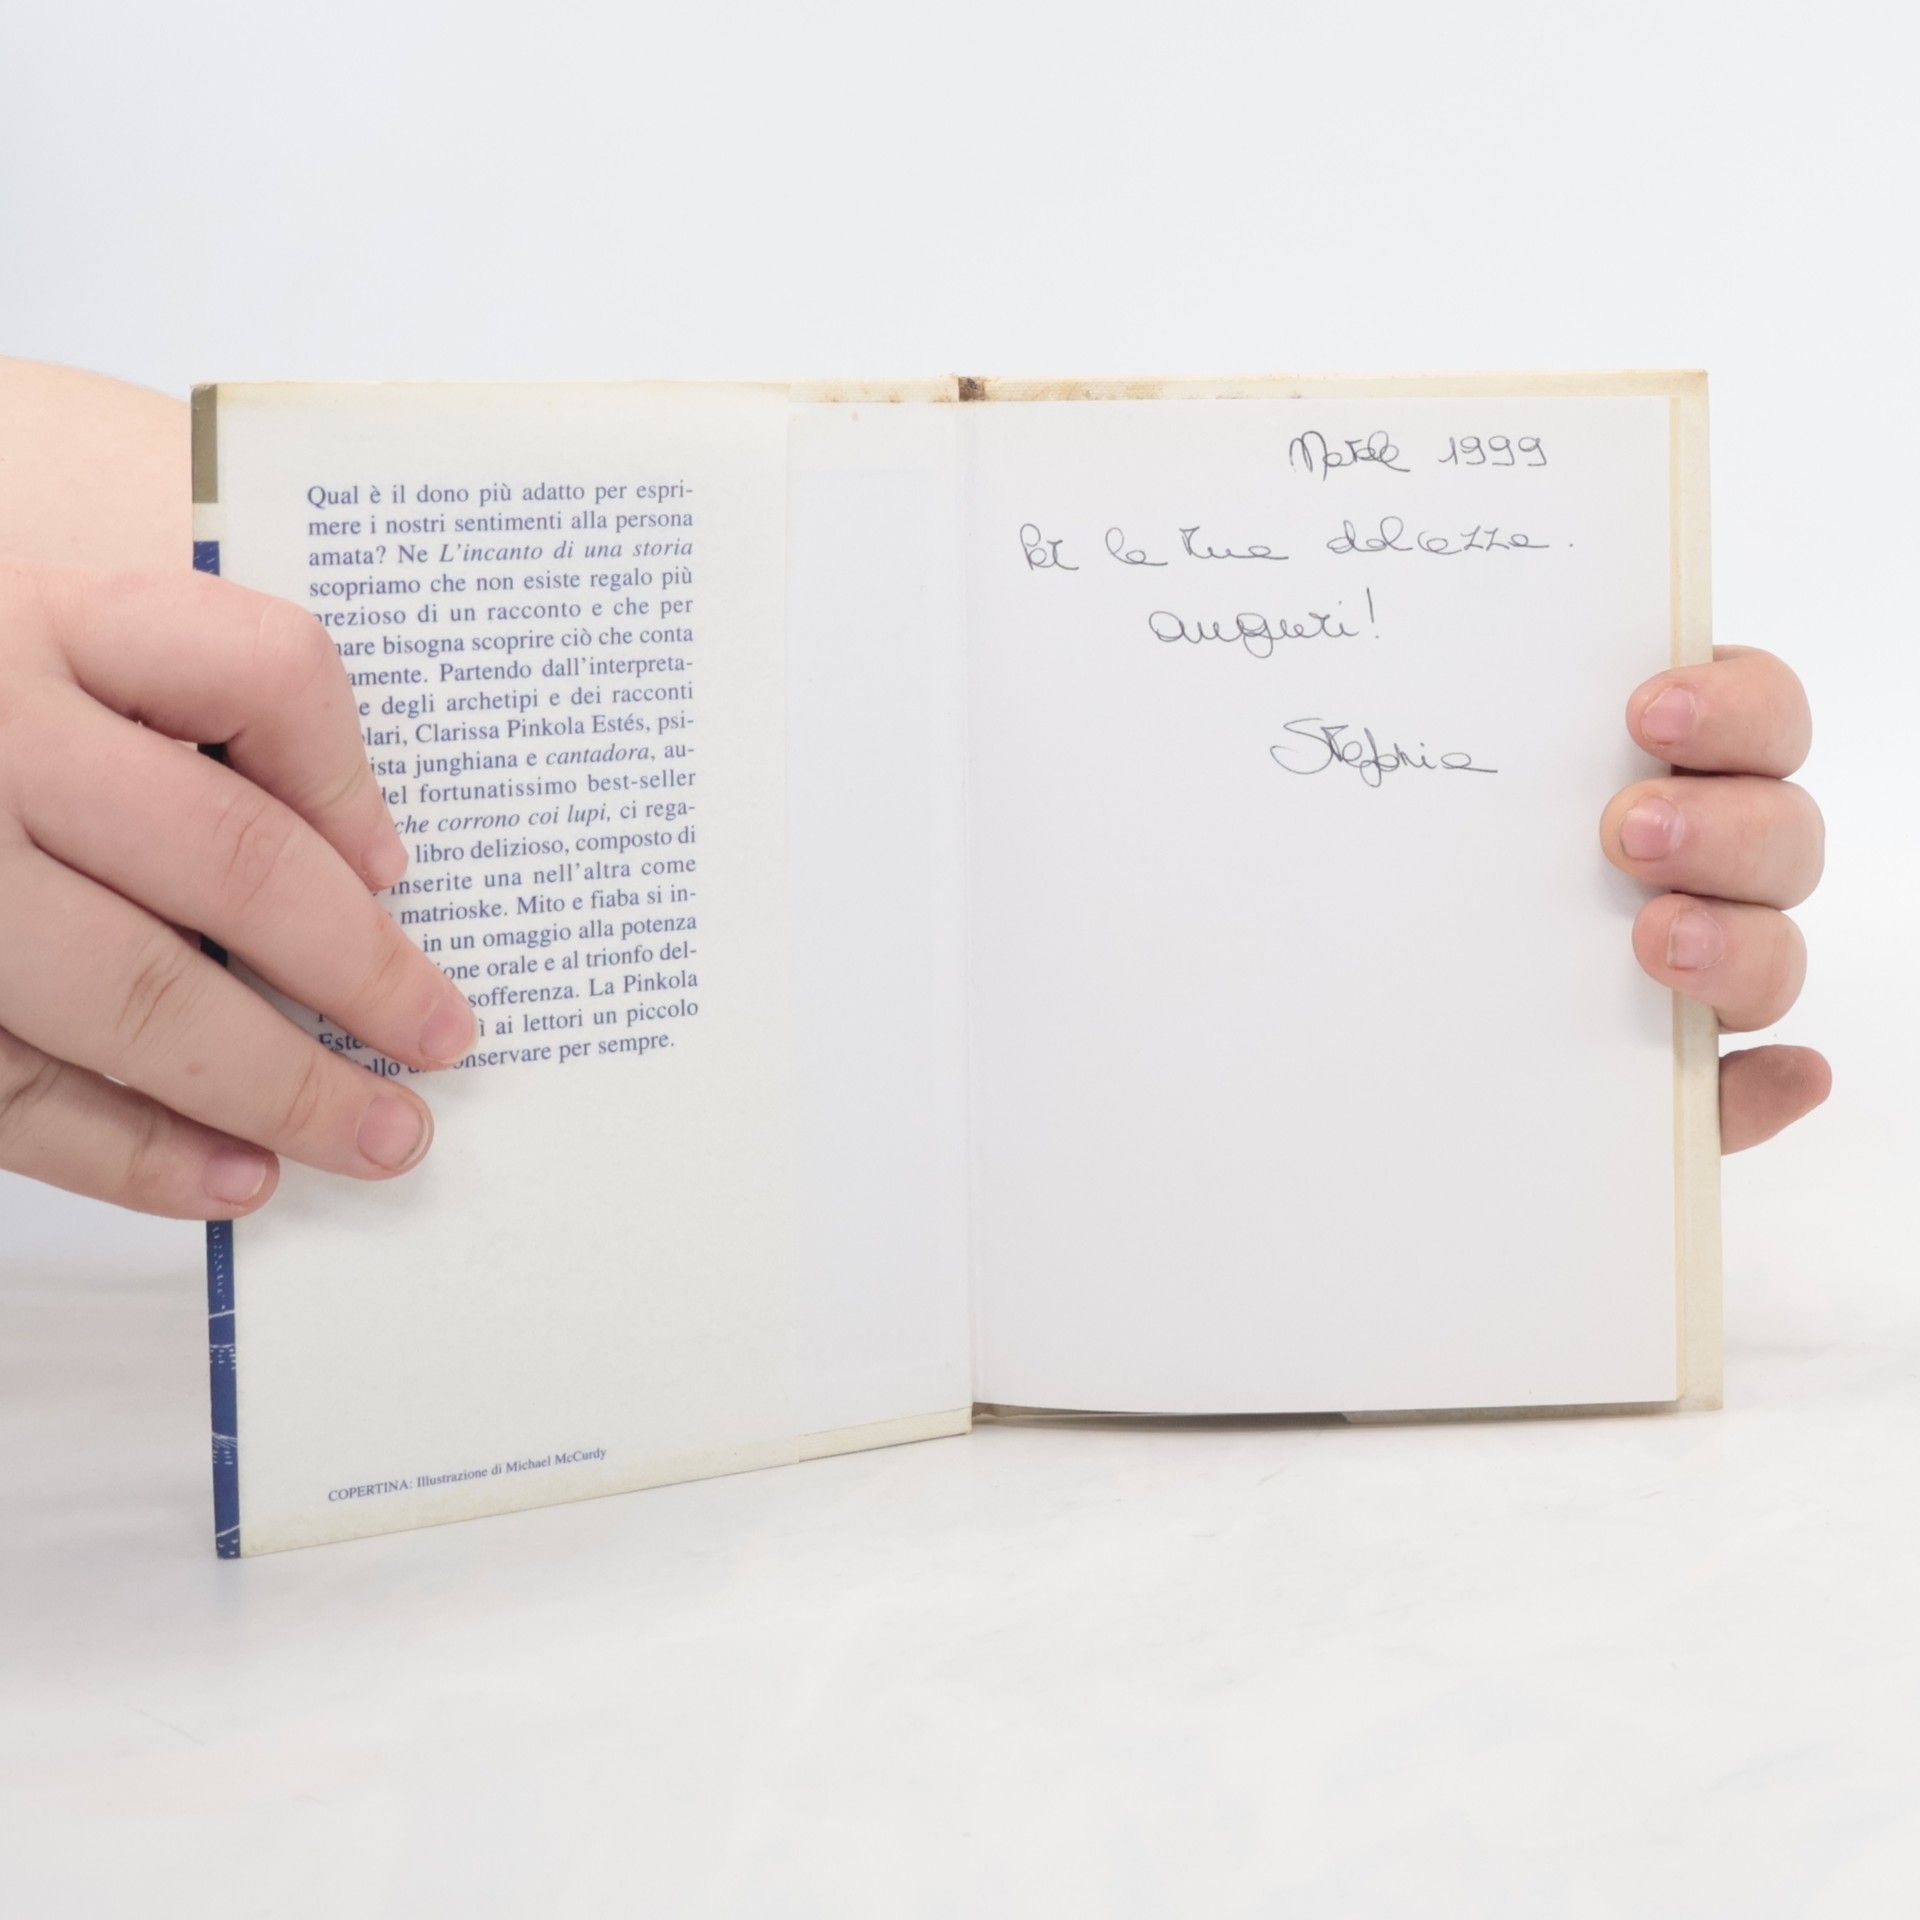 Qual è il dono più adatto per espri-
mere i nostri sentimenti alla persona
amata? Ne L'incanto di una storia
scopriamo che non esiste regalo più
prezioso di un racconto e che per
bisogna scoprire ciò che conta
Partendo dall'interpreta-
degli archetipi e dei racconti
Clarissa Pinkola Estés, psi-
junghiana e cantadora, au-
fortunatissimo best-seller
che corrono coi lupi, ci rega-
libro delizioso, composto di
inserite una nell'altra come
matrioske. Mito e fiaba si in-
in un omaggio alla potenza
orale e al trionfo del-
sofferenza. La Pinkola
ai lettori un piccolo
conservare per sempre.
COPERTINA: Illustrazione di Michael McCurdy
Natale 1999
Per la tua dolcezza.
auguri!
Stefania